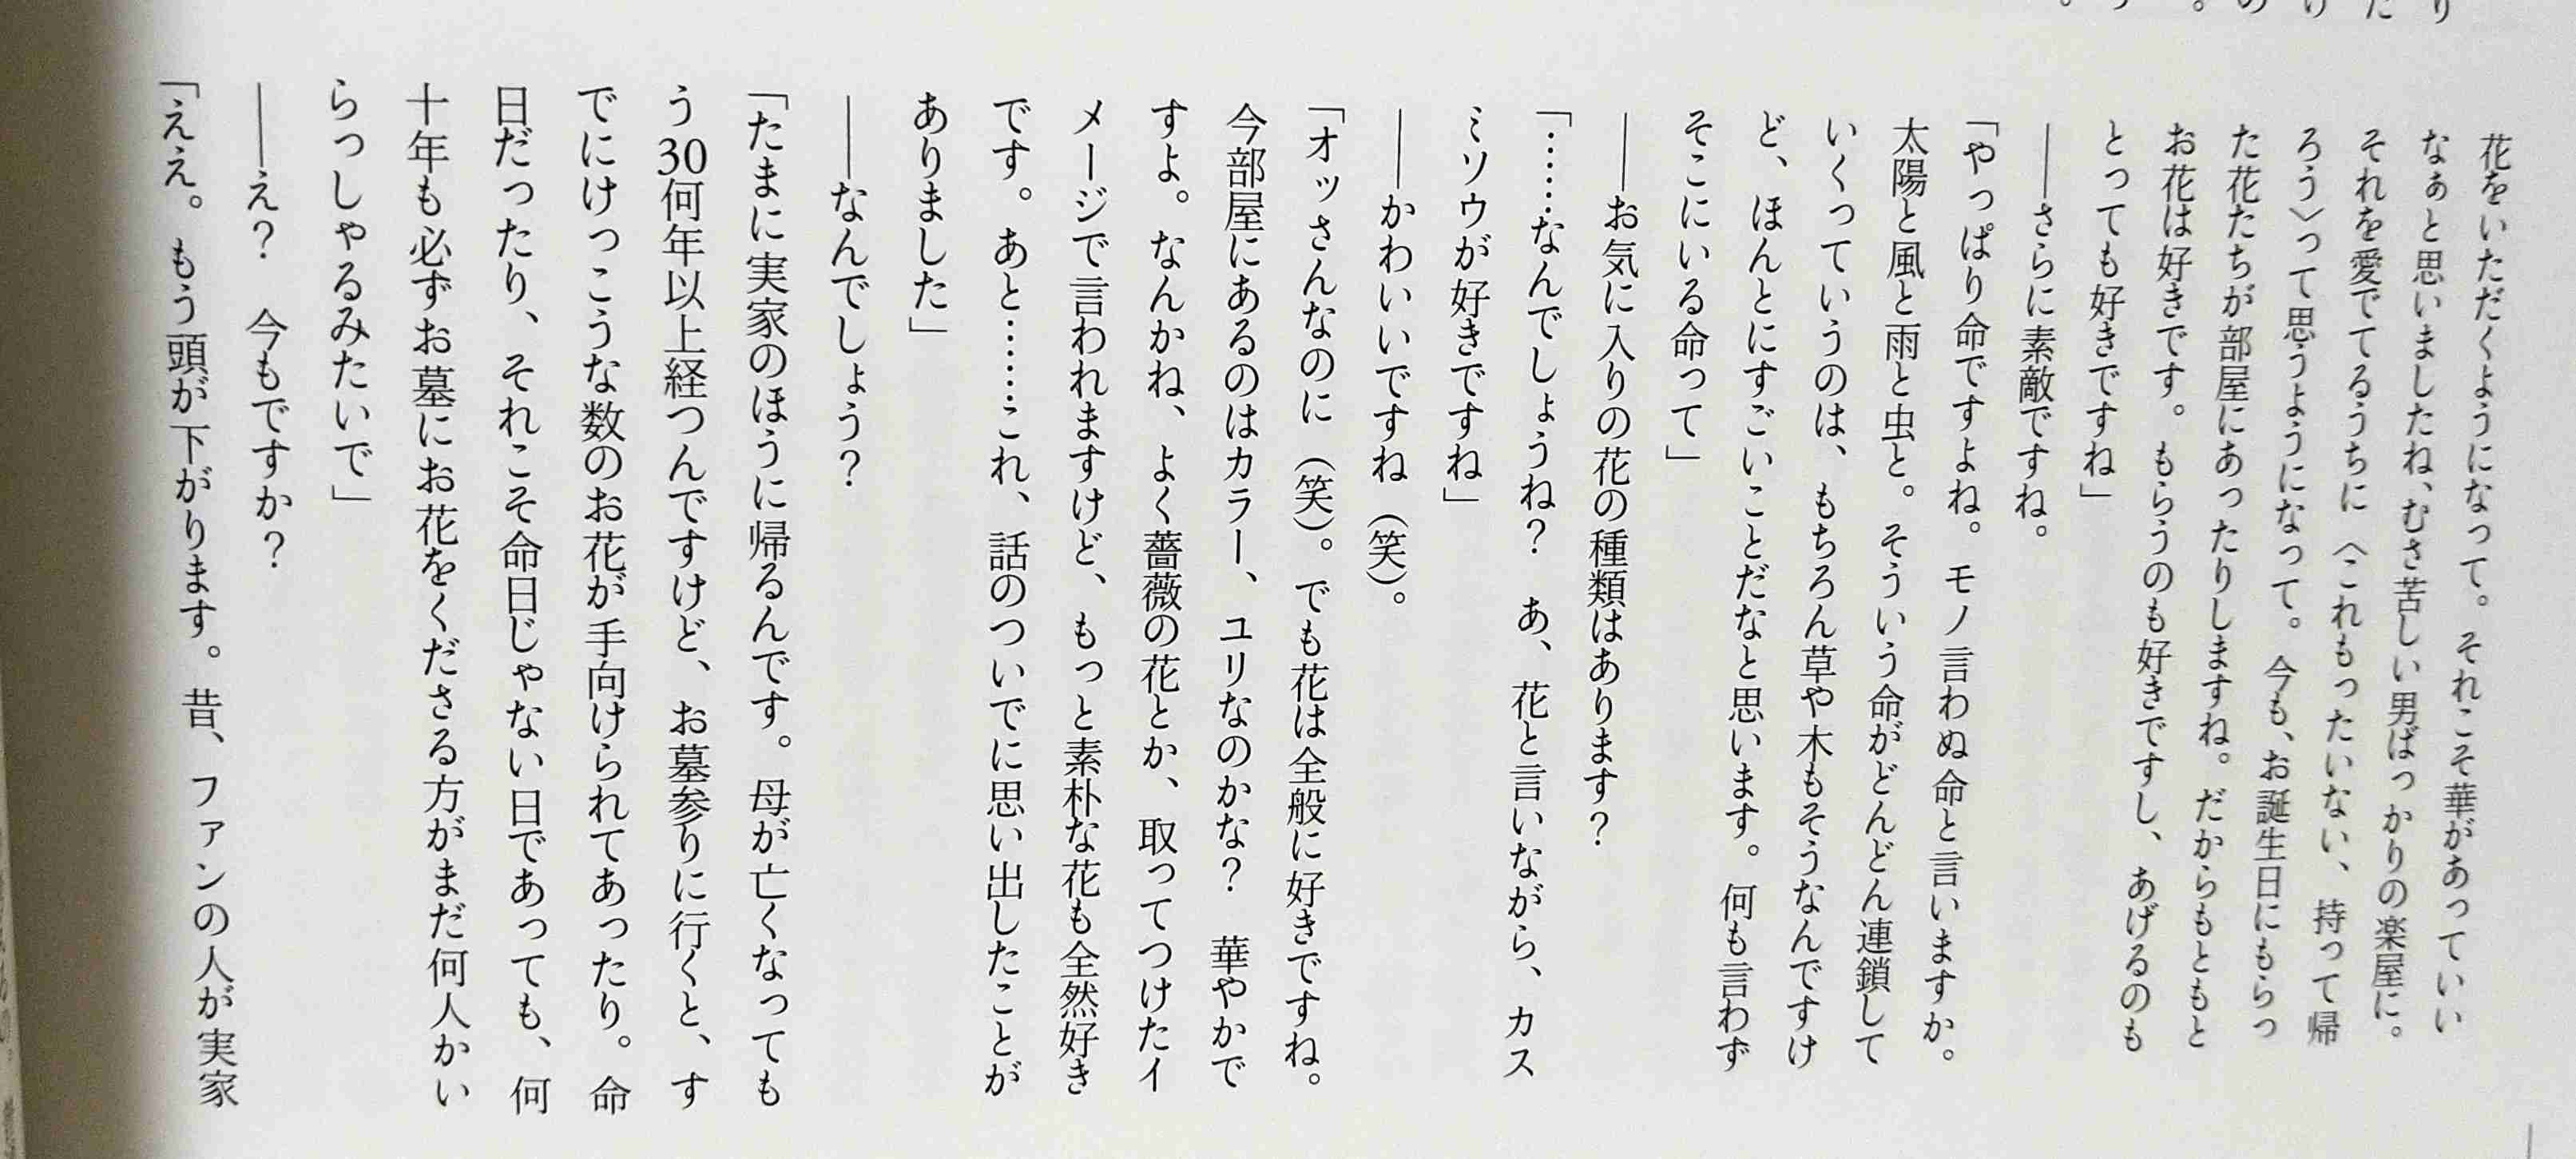 花をいただくようになって。それこそ華があっていい
なぁと思いましたね、むさ苦しい男ばっかりの楽屋に。
それを愛でてるうちに〈これもったいない、持って帰
ろう〉って思うようになって。今も、お誕生日にもらっ
た花たちが部屋にあったりしますね。だからもともと
お花は好きです。もらうのも好きですし、あげるのも
とっても好きですね」
――さらに素敵ですね。
「やっぱり命ですよね。モノ言わぬ命と言いますか。
太陽と風と雨と虫と。そういう命がどんどん連鎖して
いくっていうのは、もちろん草や木もそうなんですけ
ど、ほんとにすごいことだなと思います。何も言わず
そこにいる命って」
――お気に入りの花の種類はあります？
「……なんでしょうね？　あ、花と言いながら、カス
ミソウが好きですね」
――かわいいですね（笑）。
「オッさんなのに（笑）。でも花は全般に好きですね。
今部屋にあるのはカラー、ユリなのかな？　華やかで
すよ。なんかね、よく薔薇の花とか、取ってつけたイ
メージで言われますけど、もっと素朴な花も全然好き
です。あと……これ、話のついでに思い出したことが
ありました」
――なんでしょう？
「たまに実家のほうに帰るんです。母が亡くなっても
う30何年以上経つんですけど、お墓参りに行くと、す
でにけっこうな数のお花が手向けられてあったり。命
日だったり、それこそ命日じゃない日であっても、何
十年も必ずお墓にお花をくださる方がまだ何人かい
らっしゃるみたいで」
――え？　今もですか？
「ええ。もう頭が下がります。昔、ファンの人が実家